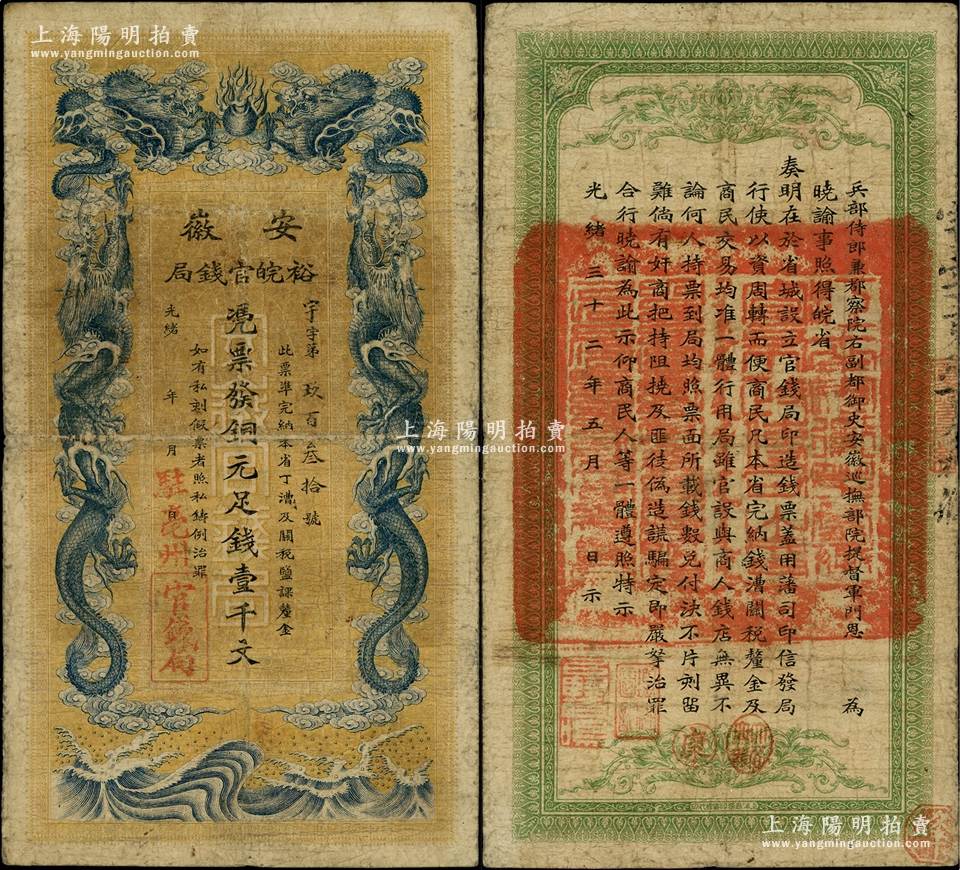 上海陽明拍賣
www.yangmingauction.com
安徽
裕皖官錢局
宇字第 玖百叁拾號
此票準完納本省丁漕及關稅鹽課釐金
憑票發銅元足錢壹千文
如有私刻假票者照私鑄例治罪
光緒 年 月 日
駐亳州官錢局
上海陽明拍賣
www.yangmingauction.com
上海陽明拍賣
www.yangmingauction.com
兵部侍郎兼都察院右副都御史安徽巡撫部院提督軍門恩 為
曉諭事照得皖省
奏明在於省城設立官錢局印造錢票蓋用藩司印信發局
行使以資周轉而便商民凡本省完納錢漕關稅釐金及
商民交易均准一體行用局雖官設與商人錢店無異不
論何人持票到局均照票面所載錢數兌付決不片刻留
難倘有奸商把持阻撓及匪徒偽造謊騙定即嚴拏治罪
合行曉諭為此示仰商民人等一體遵照特示
光緒三十二年五月 日示
上海陽明拍賣
www.yangmingauction.com